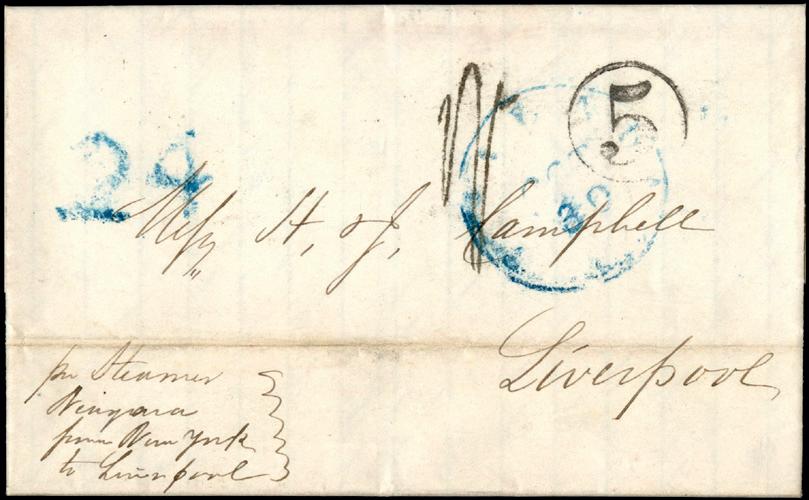 5
24
30
Mesrs H, & J, Campbell
Liverpool
per Steamer
Niagara
from New York
to Liverpool